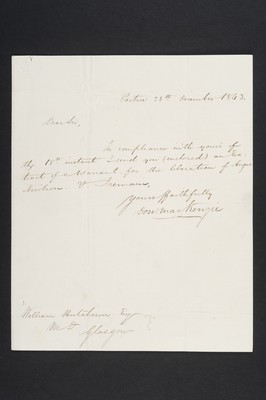 28th November 1843.
Dear Sir,
In compliance with yours of
the 18th instant I send you (enclosed) an Ex
tract of a Warrant for the liberation of Angus
Yours faithfully
Don MacKenzie
William Hutcheson Esq
Glasgow